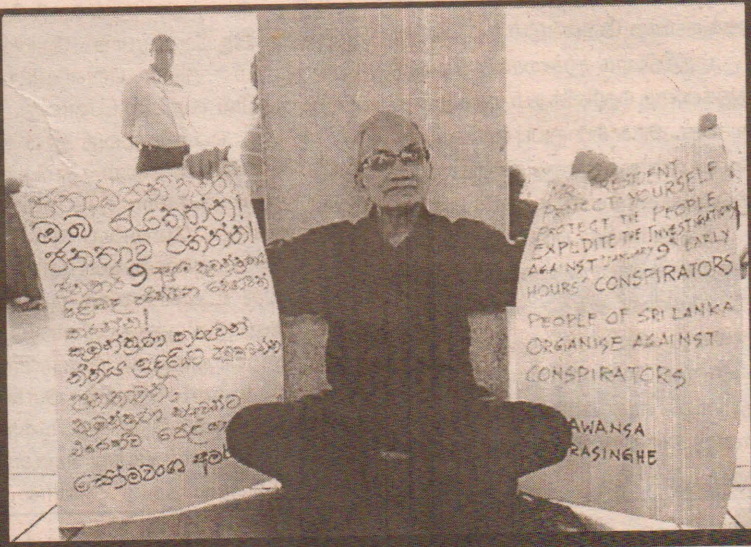 ජනාධිපතිතුමනි
ඔබ රැකගන්න!
ජනතාව රකින්න!
ජනවාරි 9 අලුයම කුමන්ත්‍රණය
පිළිබඳ පරීක්ෂණ වේගවත්
කරන්න!
කුමන්ත්‍රණ කරුවන්
නීතිය ඉදිරියට
ජනතාවනි,
කුමන්ත්‍රණ කරුවන්ට
එරෙහිව පෙළ
සෝමවංශ අමර
MR PRESIDENT
PROTECT YOURSELF
PROTECT THE PEOPLE
EXPLDITE THE INVESTIGATION
AGAINST JANUARY 9th EARLY
HOURS' CONSPIRATORS
PEOPLE OF SRI LANKA
ORGANISE AGAINST
CONSPIRATORS
AWANSA
RASINGHE